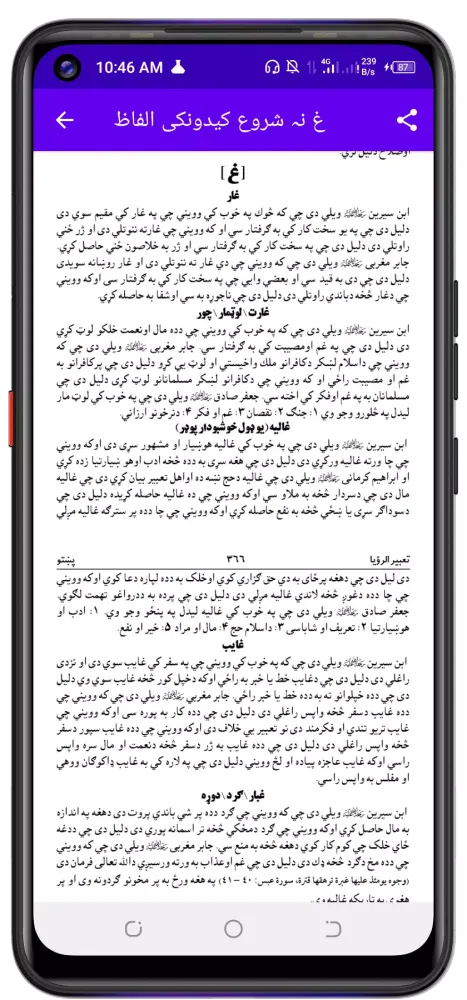 10:46 AM
4G
239
B/s
87
غ نہ شروع کیدونکی الفاظ
اوصلاح دلیل لري.
[غ]
غار
ابن سیرین رحمہ اللہ ویلي دي چي که څوك په خوب کي وویني چي په غار کي مقیم سوي دی
دلیل دی چي په یو سخت کار کي به ګرفتار سي او که وویني چي غارته ننوتلي دی او ژر ځني
راوتلي دی دلیل دی چي په سخت کار کي به ګرفتار سي او ژر به خلاصون ځني حاصل کړي.
جابر مغربی رحمہ اللہ ویلي دي چي که وویني چي دي غار ته ننوتلي دی او غار روښانه سویدی
دلیل دی چي به قید سي او بعضي وایي چي په سخت کار کي به ګرفتار سی اوکه وویني
چي دغار څخه دباندي راوتلي دی دلیل دی چي ناجوړه به سي او شفا به حاصله کړي.
غارت\لوټمار\چور
ابن سیرین رحمہ اللہ ویلي دي چي که په خوب کي وویني چي دده مال اونعمت خلکو لوټ کړي
دی دلیل دی چي په غم اومصیبت کي به ګرفتار سي. جابر مغربی رحمہ اللہ ویلي دي چي که
وویني چي داسلام لښکر دکافرانو ملك واخیستي او لوټ یي کړو دلیل دی چي پرکافرانو به
غم او مصیبت راځي او که وویني چي دکافرانو لښکر مسلمانانو لوټ کړی دلیل دی چي
مسلمانان به په غم اوفکر کي اخته سي. جعفر صادق رحمہ اللہ ویلي دي چي په خوب کي لوټ مار
لیدل په څلورو وجو وي ۱: جنګ ۲: نقصان ۳: غم او فکر ۴: دنرخونو ارزاني.
غالیه(یوډول خوشبودار پوډر)
ابن سیرین رحمہ اللہ ویلي دي چي په خوب کي غالیه هوښیار او مشهور سړی دی اوکه وویني
چي چا ورته غالیه ورکړې دی دلیل دی چي هغه سړی به دده څخه ادب اوهو ښیارتیا زده کړي
او ابراهیم کرمانی رحمہ اللہ ویلي دي چي غالیه دحج نښه ده اواهل تعبیر بیان کړی دی چي غالیه
مال دی چي دسردار څخه به ملاو سي اوکه وویني چي ده غالیه حاصله کړیده دلیل دی چي
دسوداګر سړي یا ښځي څخه به نفع حاصله کړي اوکه وویني چي چا دده پر سترګه غالیه مږلي
تعبیر الرؤیا ۳۶۶ پښتو
دی لیل دی چي دهغه پرځای به دی حق ګزاري کوي اوخلک به دده لپاره دعا کوي اوکه وویني
چي چا دده دغوږ څخه لاندي غالیه مږلي دی دلیل دی چي پرده به ددرواغو تهمت لګوي.
جعفر صادق رحمہ اللہ ویلي دي چي په خوب کي غالیه لیدل په پنځو وجو وي. ۱: ادب او
هوښیارتیا ۲: تعریف او شاباسی ۳: داسلام حج ۴: مال او مراد ۵: خیر او نفع.
غایب
ابن سیرین رحمہ اللہ ویلي دي چي که په خوب کي وویني چي په سفر کي غایب سوي دی او نژدې
راغلي دی دلیل دی چي دغایب خط یا خبر به راځي اوکه دخپل کور څخه غایب سوي وي دلیل
دی چي دده خپلوانو ته به دده خط یا خبر راځي. جابر مغربی رحمہ اللہ ویلي دي چي که وویني چي
دده غایب دسفر څخه واپس راغلي دی دلیل دی چي دده کار به پوره سی اوکه وویني چي
غایب تریو تندي او فکرمند دی نو تعبیر یي خلاف دی اوکه وویني چي دده غایب سپور دسفر
څخه واپس راغلي دی دلیل دی چي دده غایب به ژر دسفر څخه دنعمت او مال سره واپس
راسي اوکه غایب عاجزه پیاده او لڅ وویني دلیل دی چي په لاره کي به غایب ډاکوګان ووهي
او مفلس به واپس راسي.
غبار\ګرد\دوړه
ابن سیرین رحمہ اللہ ویلي دي چي که وویني چي ګرد دده پر شي باندي پروت دی دهغه په اندازه
به مال حاصل کړي اوکه وویني چي ګرد دمځکي څخه تر اسمانه پوري دی دلیل دی چي ددغه
ځای خلک چي کوم کار کوي دهغه څخه به منع سي. جابر مغربی رحمہ اللہ ویلي دي چي که وویني
چي دده مخ دګرد څخه ډك دی دلیل دی چي غم اوعذاب به ورته ورسیږي دالله تعالی فرمان دی
(وجوه یومئذ علیها غبرة ترهقها قترة، سورة عبس: ۴۰ – ۴۱) په هغه ورځ به پر مخونو ګردونه وي او پر
هغوی به تاریکه غالبه وي.